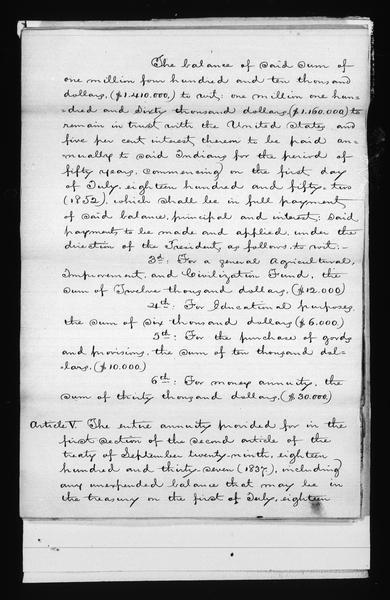 The balance of said sum of
one million four hundred and ten thousand
dollars, ($1.410.000,) to wit: one million one hun-
-dred and sixty thousand dollars ($1.160.000) to
remain in trust with the United States, and
five per cent interest thereon to be paid an-
nually to said Indians for the period of
fifty years, commencing on the first day
of July, eighteen hundred and fifty-two
(1852), which shall be in full payment
of said balance, principal and interest; said
payments to be made and applied, under the
direction of the President, as follows, to wit:-
3d: For a general Agricultural,
Improvement, and Civilization Fund, the
sum of Twelve thousand dollars, ($12.000)
4th: For Educational purposes,
the sum of six thousand dollars ($6.000)
5th: For the purchase of goods
and provisions, the sum of ten thousand dol-
-lars, ($10.000)
6th: For money annuity, the
sum of thirty thousand dollars, ($30.000)
Article V The entire annuity provided for in the
first section of the second article of the
treaty of September twenty-ninth, eighteen
hundred and thirty-seven (1837), including
any unexpended balance that may be in
the treasury on the first of July, eighteen